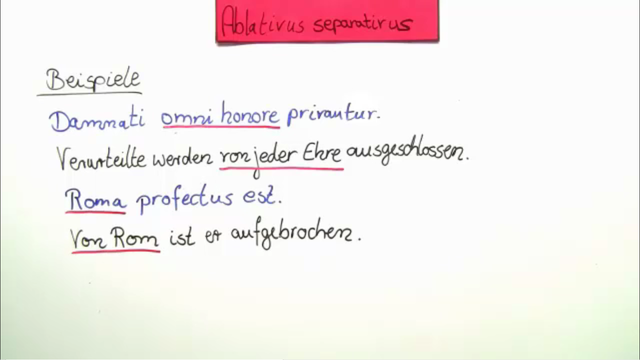 Ablativus separativus
Beispiele
Damnati omni honore privantur.
Verurteilte werden von jeder Ehre ausgeschlossen.
Roma profectus est.
Von Rom ist er aufgebrochen.